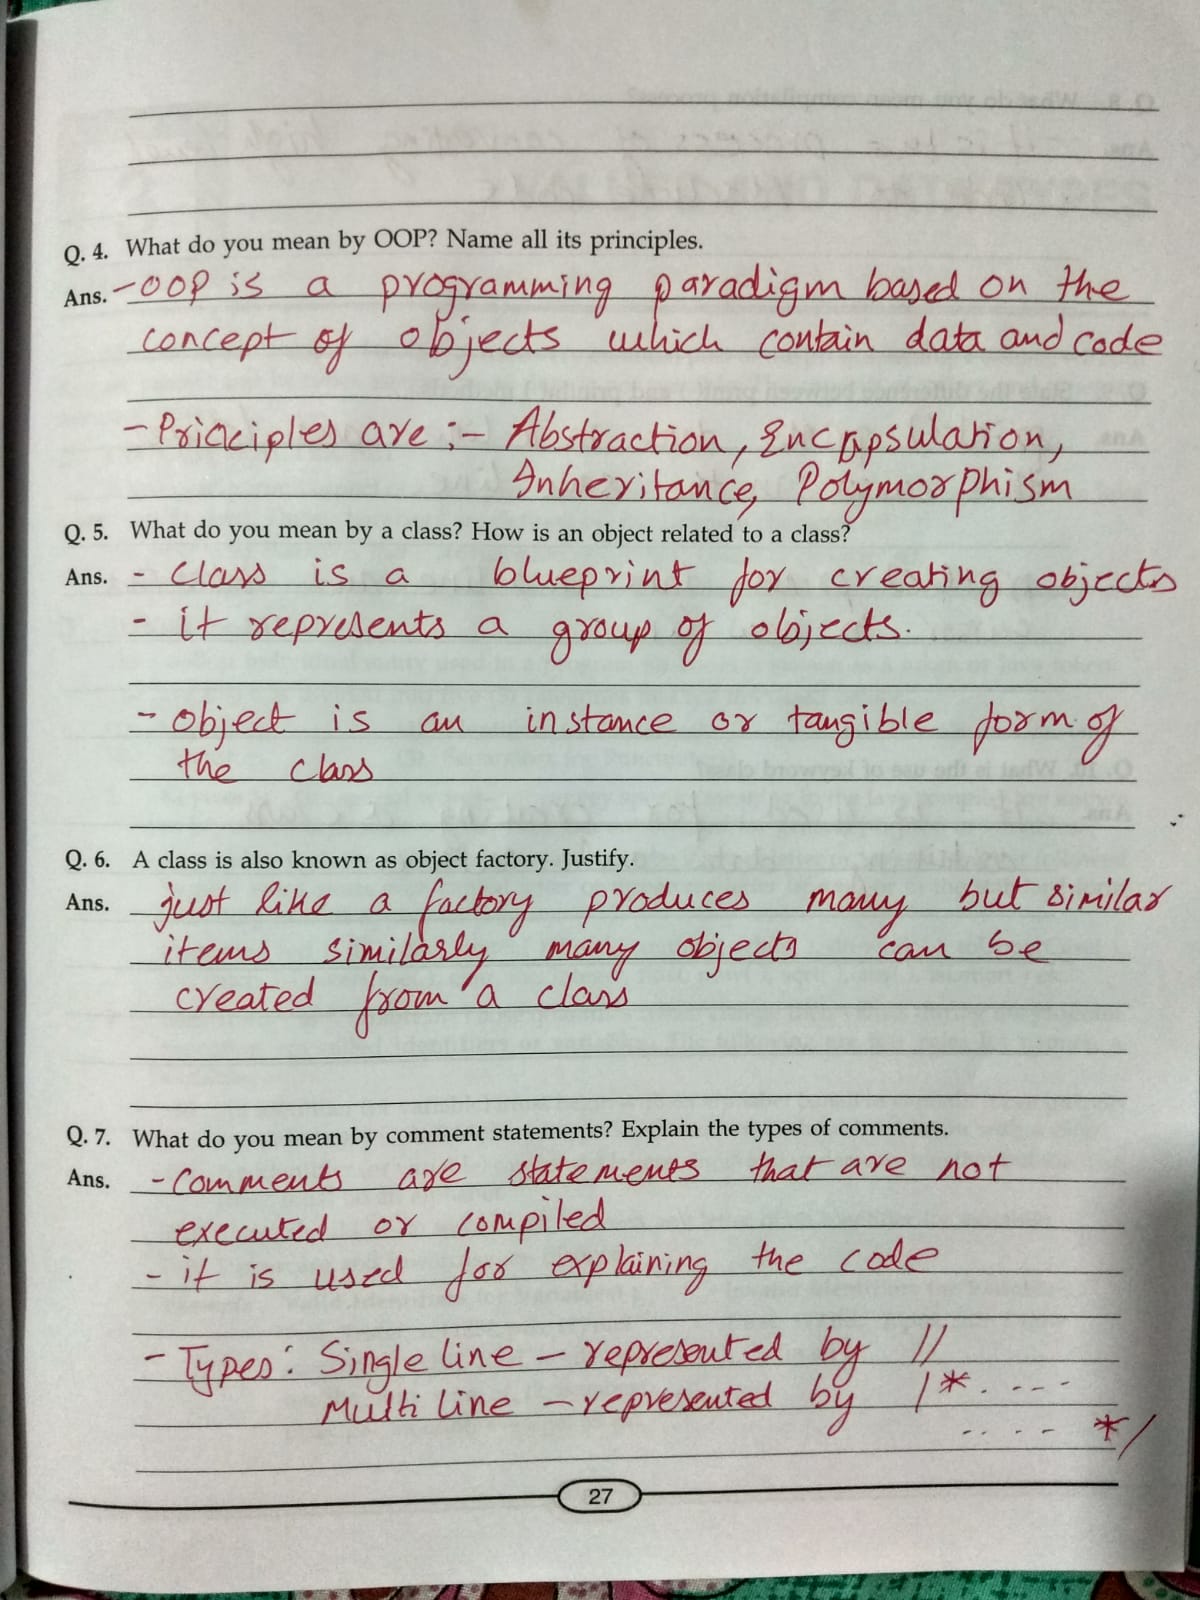 Q. 4. What do you mean by OOP? Name all its principles.
Ans. - OOP is a programming paradigm based on the
concept of objects which contain data and code
- Priciciples are :- Abstraction, Encapsulation,
Inheritance, Polymorphism
Q. 5. What do you mean by a class? How is an object related to a class?
Ans. - Class is a blueprint for creating objects
- it represents a group of objects.
- object is an instance or tangible form of
the class
Q. 6. A class is also known as object factory. Justify.
Ans. just like a factory produces many but similar
items similarly many objects can be
created from a class
Q. 7. What do you mean by comment statements? Explain the types of comments.
Ans. - Comments are statements that are not
executed or compiled
- it is used for explaining the code
- Types: Single line - represented by //
Multi line - represented by /*. ---
.. - - */
27